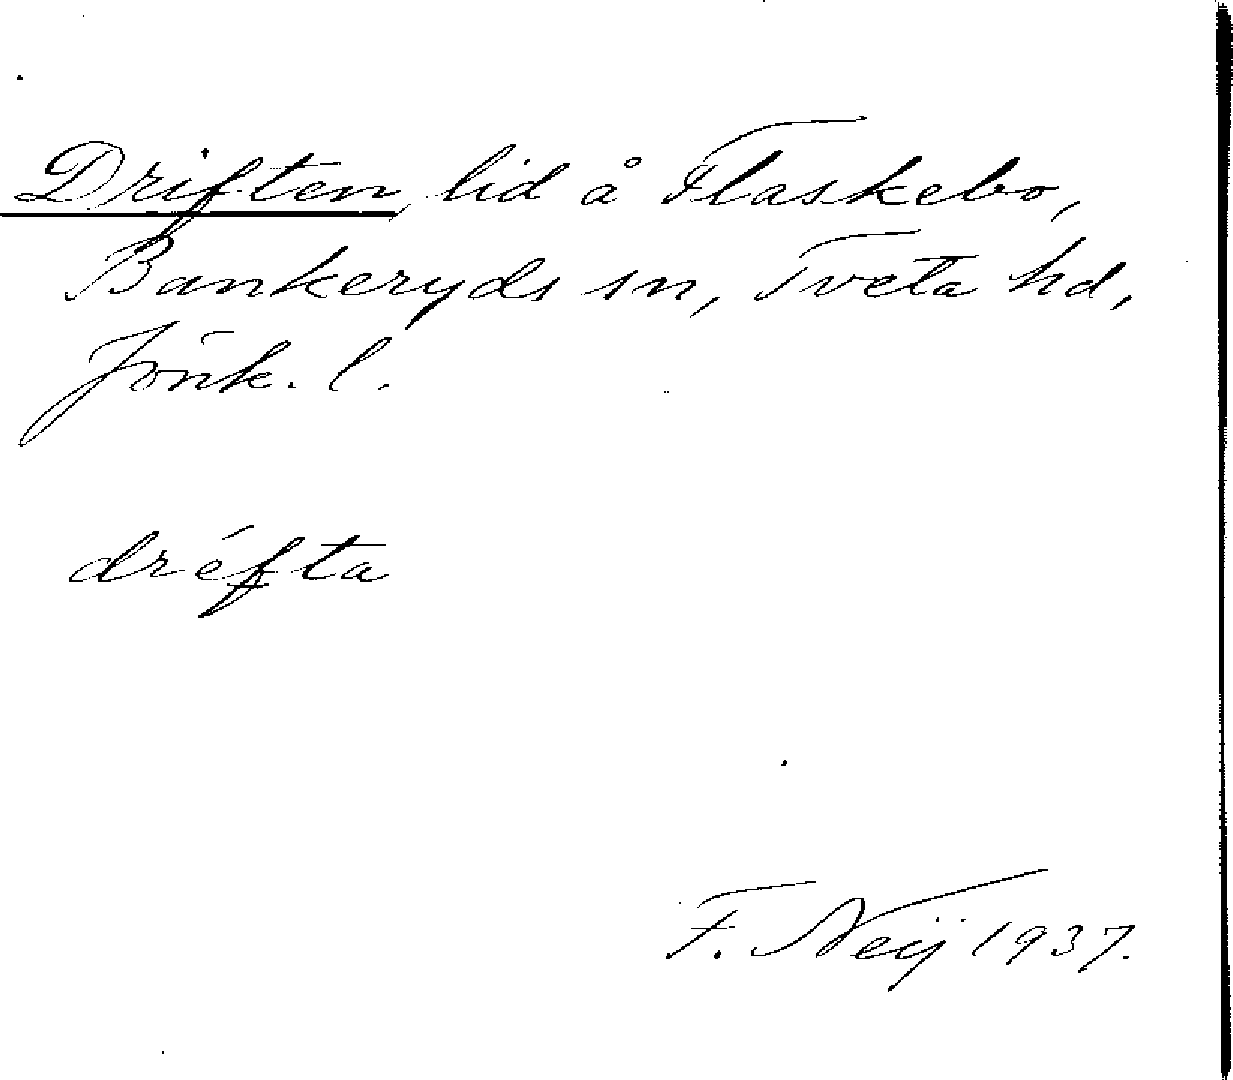 Driften, lid å Flaskebo,
Bankeryds sn, Tveta hd,
Jönk. l.
dréfta
F. Neij 1937.